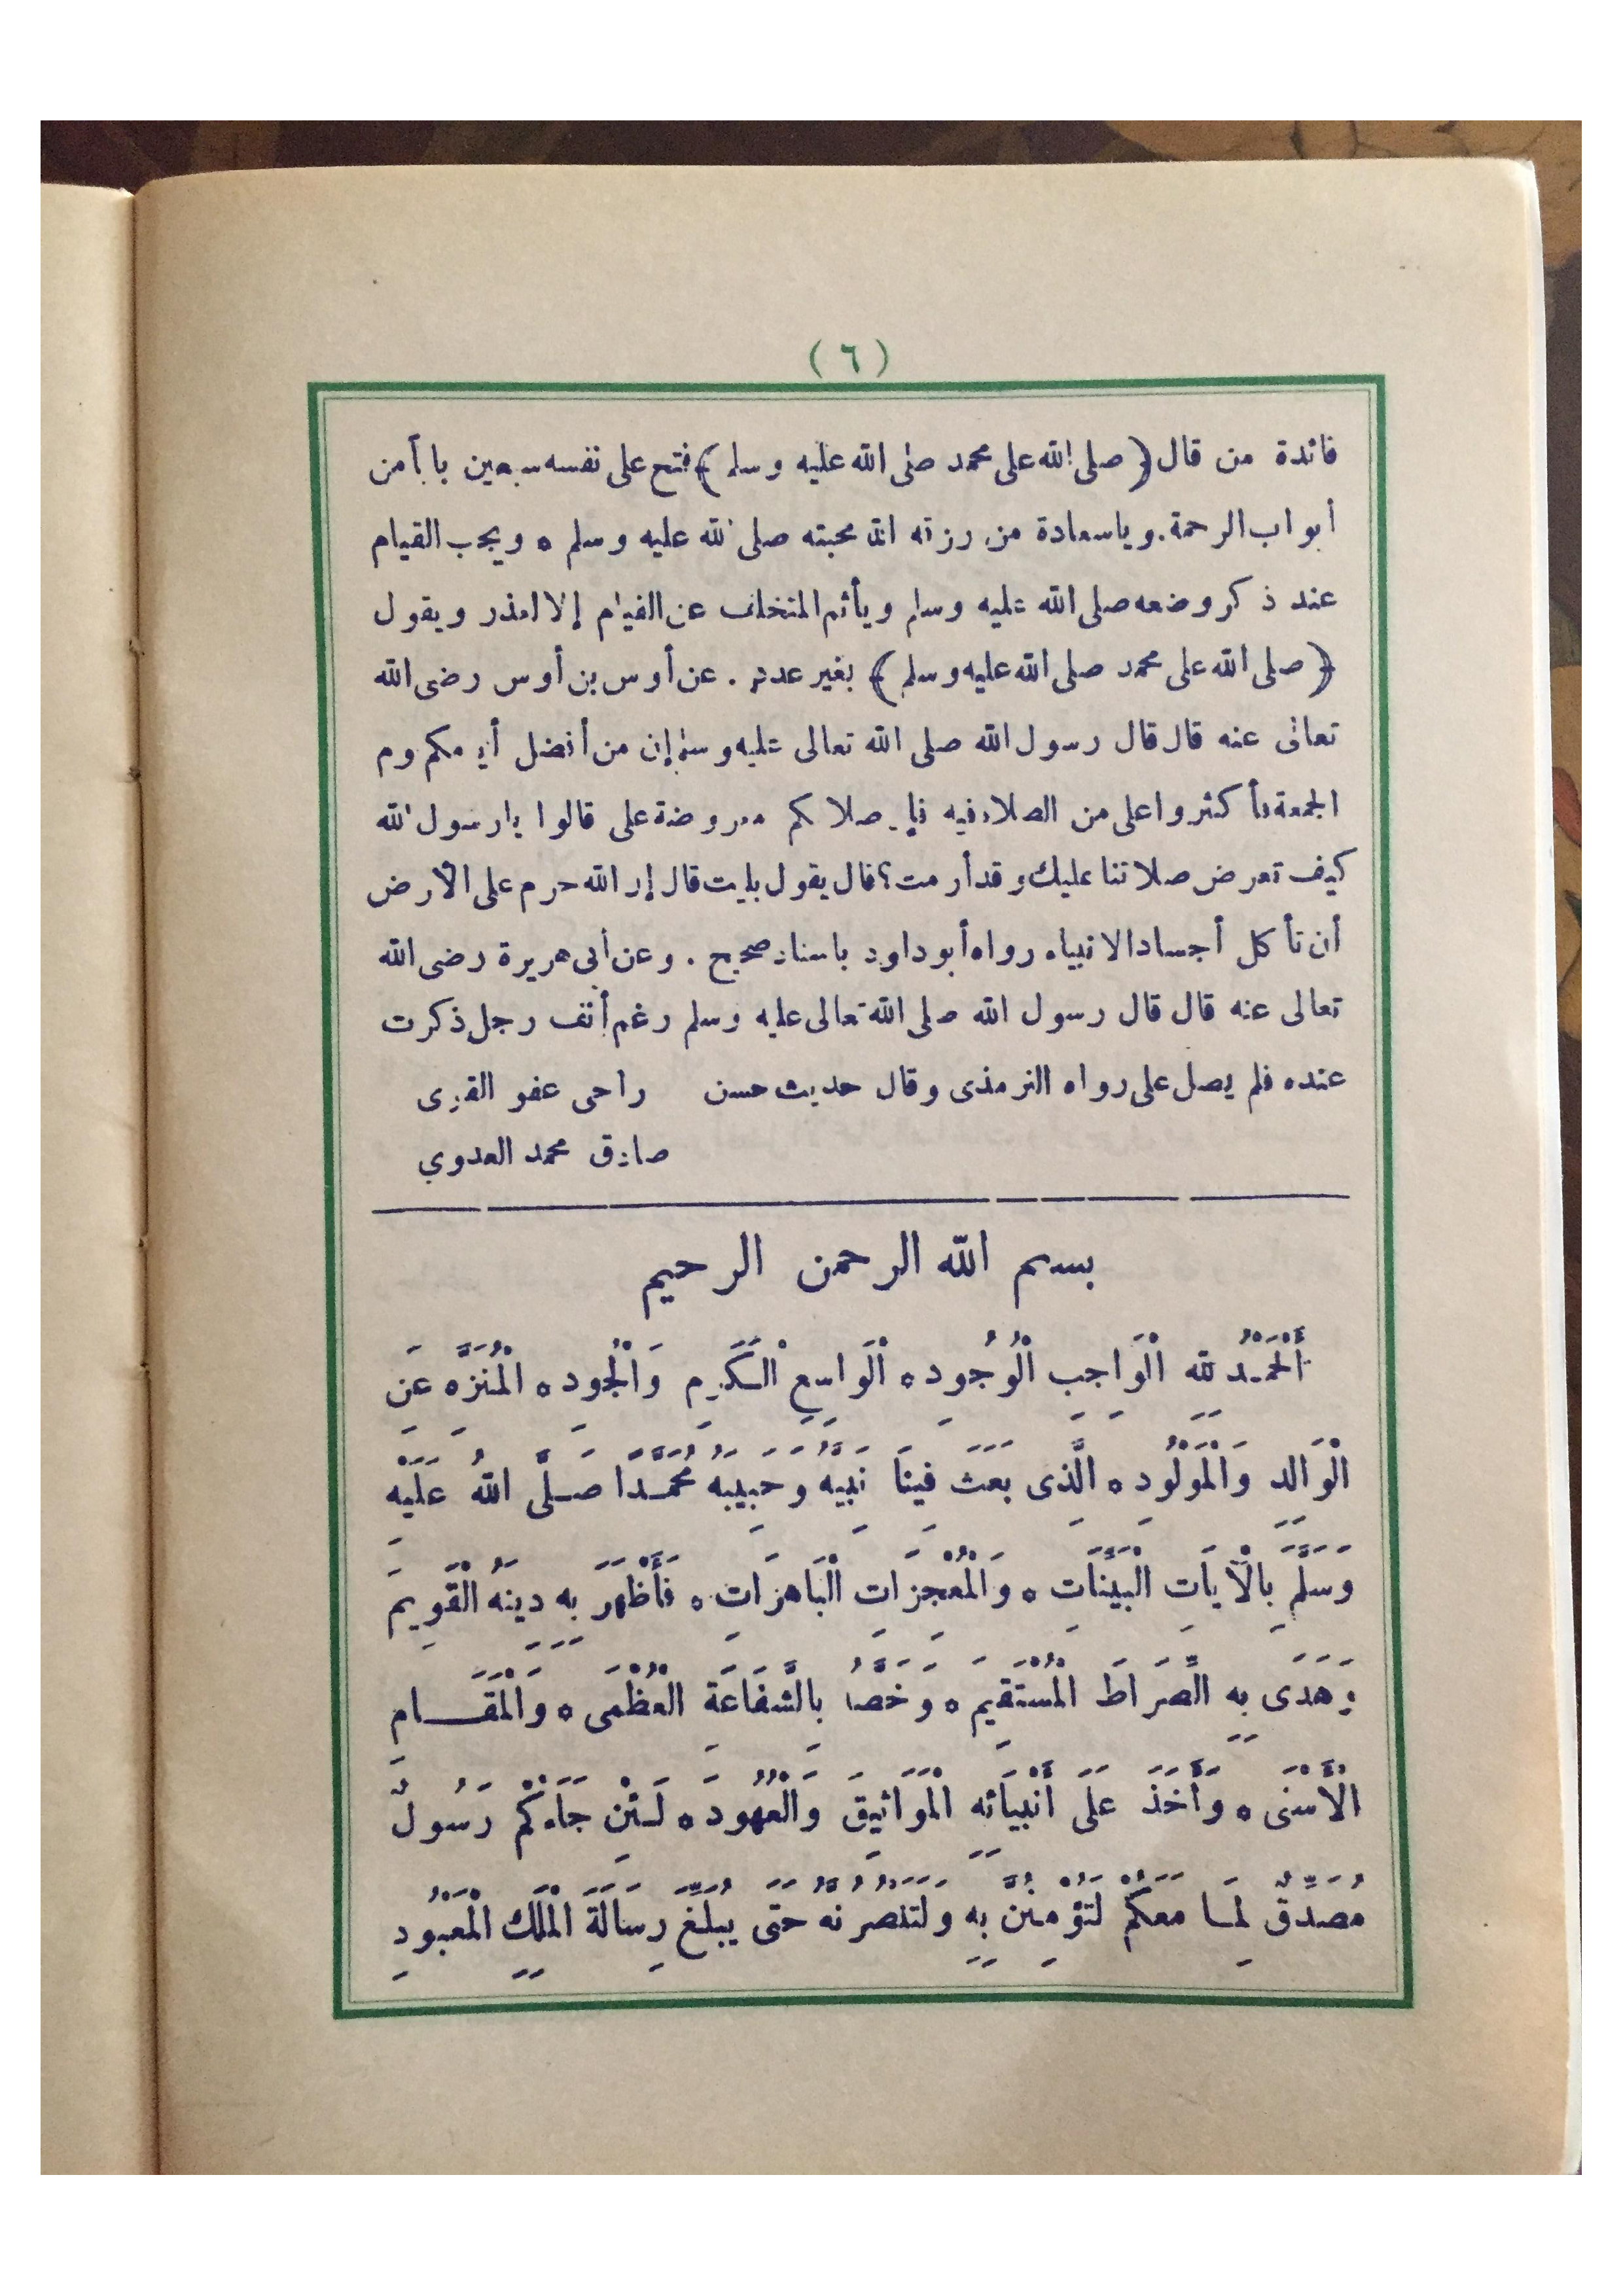 ( ٦ )
فائدة من قال ﴿ صلى الله على محمد صلى الله عليه وسلم ﴾ فتح على نفسه سبعين بابا من
أبواب الرحمة . وياسعادة من رزقه الله محبته صلى الله عليه وسلم ه ويجب القيام
عند ذكر وضعه صلى الله عليه وسلم ويأثم المتخلف عن القيام إلا لعذر ويقول
﴿ صلى الله على محمد صلى الله عليه وسلم ﴾ بغير عدد . عن أوس بن أوس رضى الله
تعالى عنه قال قال رسول الله صلى الله تعالى عليه وسلم إن من أفضل أيامكم يوم
الجمعة فأكثروا على من الصلاة فيه فإن صلاتكم معروضة على قالوا يارسول الله
كيف تعرض صلاتنا عليك وقد أرمت؟ قال يقول بليت قال إن الله حرم على الأرض
أن تأكل أجساد الانبياء رواه أبو داود باسناد صحيح . وعن أبى هريرة رضى الله
تعالى عنه قال قال رسول الله صلى الله تعالى عليه وسلم رغم أنف رجل ذكرت
عنده فلم يصل على رواه الترمذى وقال حديث حسن راجى عفو القوى
صادق محمد العدوي
بسم الله الرحمن الرحيم
أَلْحَمْدُ لِلهِ الْوَاجِبِ الْوُجُودِ ه الْوَاسِعِ الْكَرَمِ وَالْجُودِ ه الْمُنَزَّهِ عَنِ
الْوَالِدِ وَالْمَوْلُودِ ه الَّذِى بَعَثَ فِينَا نَبِيَّهُ وَحَبِيبَهُ مُحَمَّدًا صَلَّى اللهُ عَلَيْهِ
وَسَلَّمَ بِالْآيَاتِ الْبَيِّنَاتِ ه وَالْمُعْجِزَاتِ الْبَاهِرَاتِ ه فَأَظْهَرَ بِهِ دِينَهُ الْقَوِيمَ
وَهَدَى بِهِ الصِّرَاطَ الْمُسْتَقِيمَ ه وَخَصَّهُ بِالشَّفَاعَةِ الْعُظْمَى ه وَالْمَقَامِ
الْأَسْنَى ه وَأَخَذَ عَلَى أَنْبِيَائِهِ الْمَوَاثِيقَ وَالْعُهُودَ ه لَئِنْ جَاءَكُمْ رَسُولٌ
مُصَدِّقٌ لِمَا مَعَكُمْ لَتُؤْمِنُنَّ بِهِ وَلَتَنْصُرُنَّهُ حَتَّى يُبَلِّغَ رِسَالَةَ الْمَلِكِ الْمَعْبُودِ